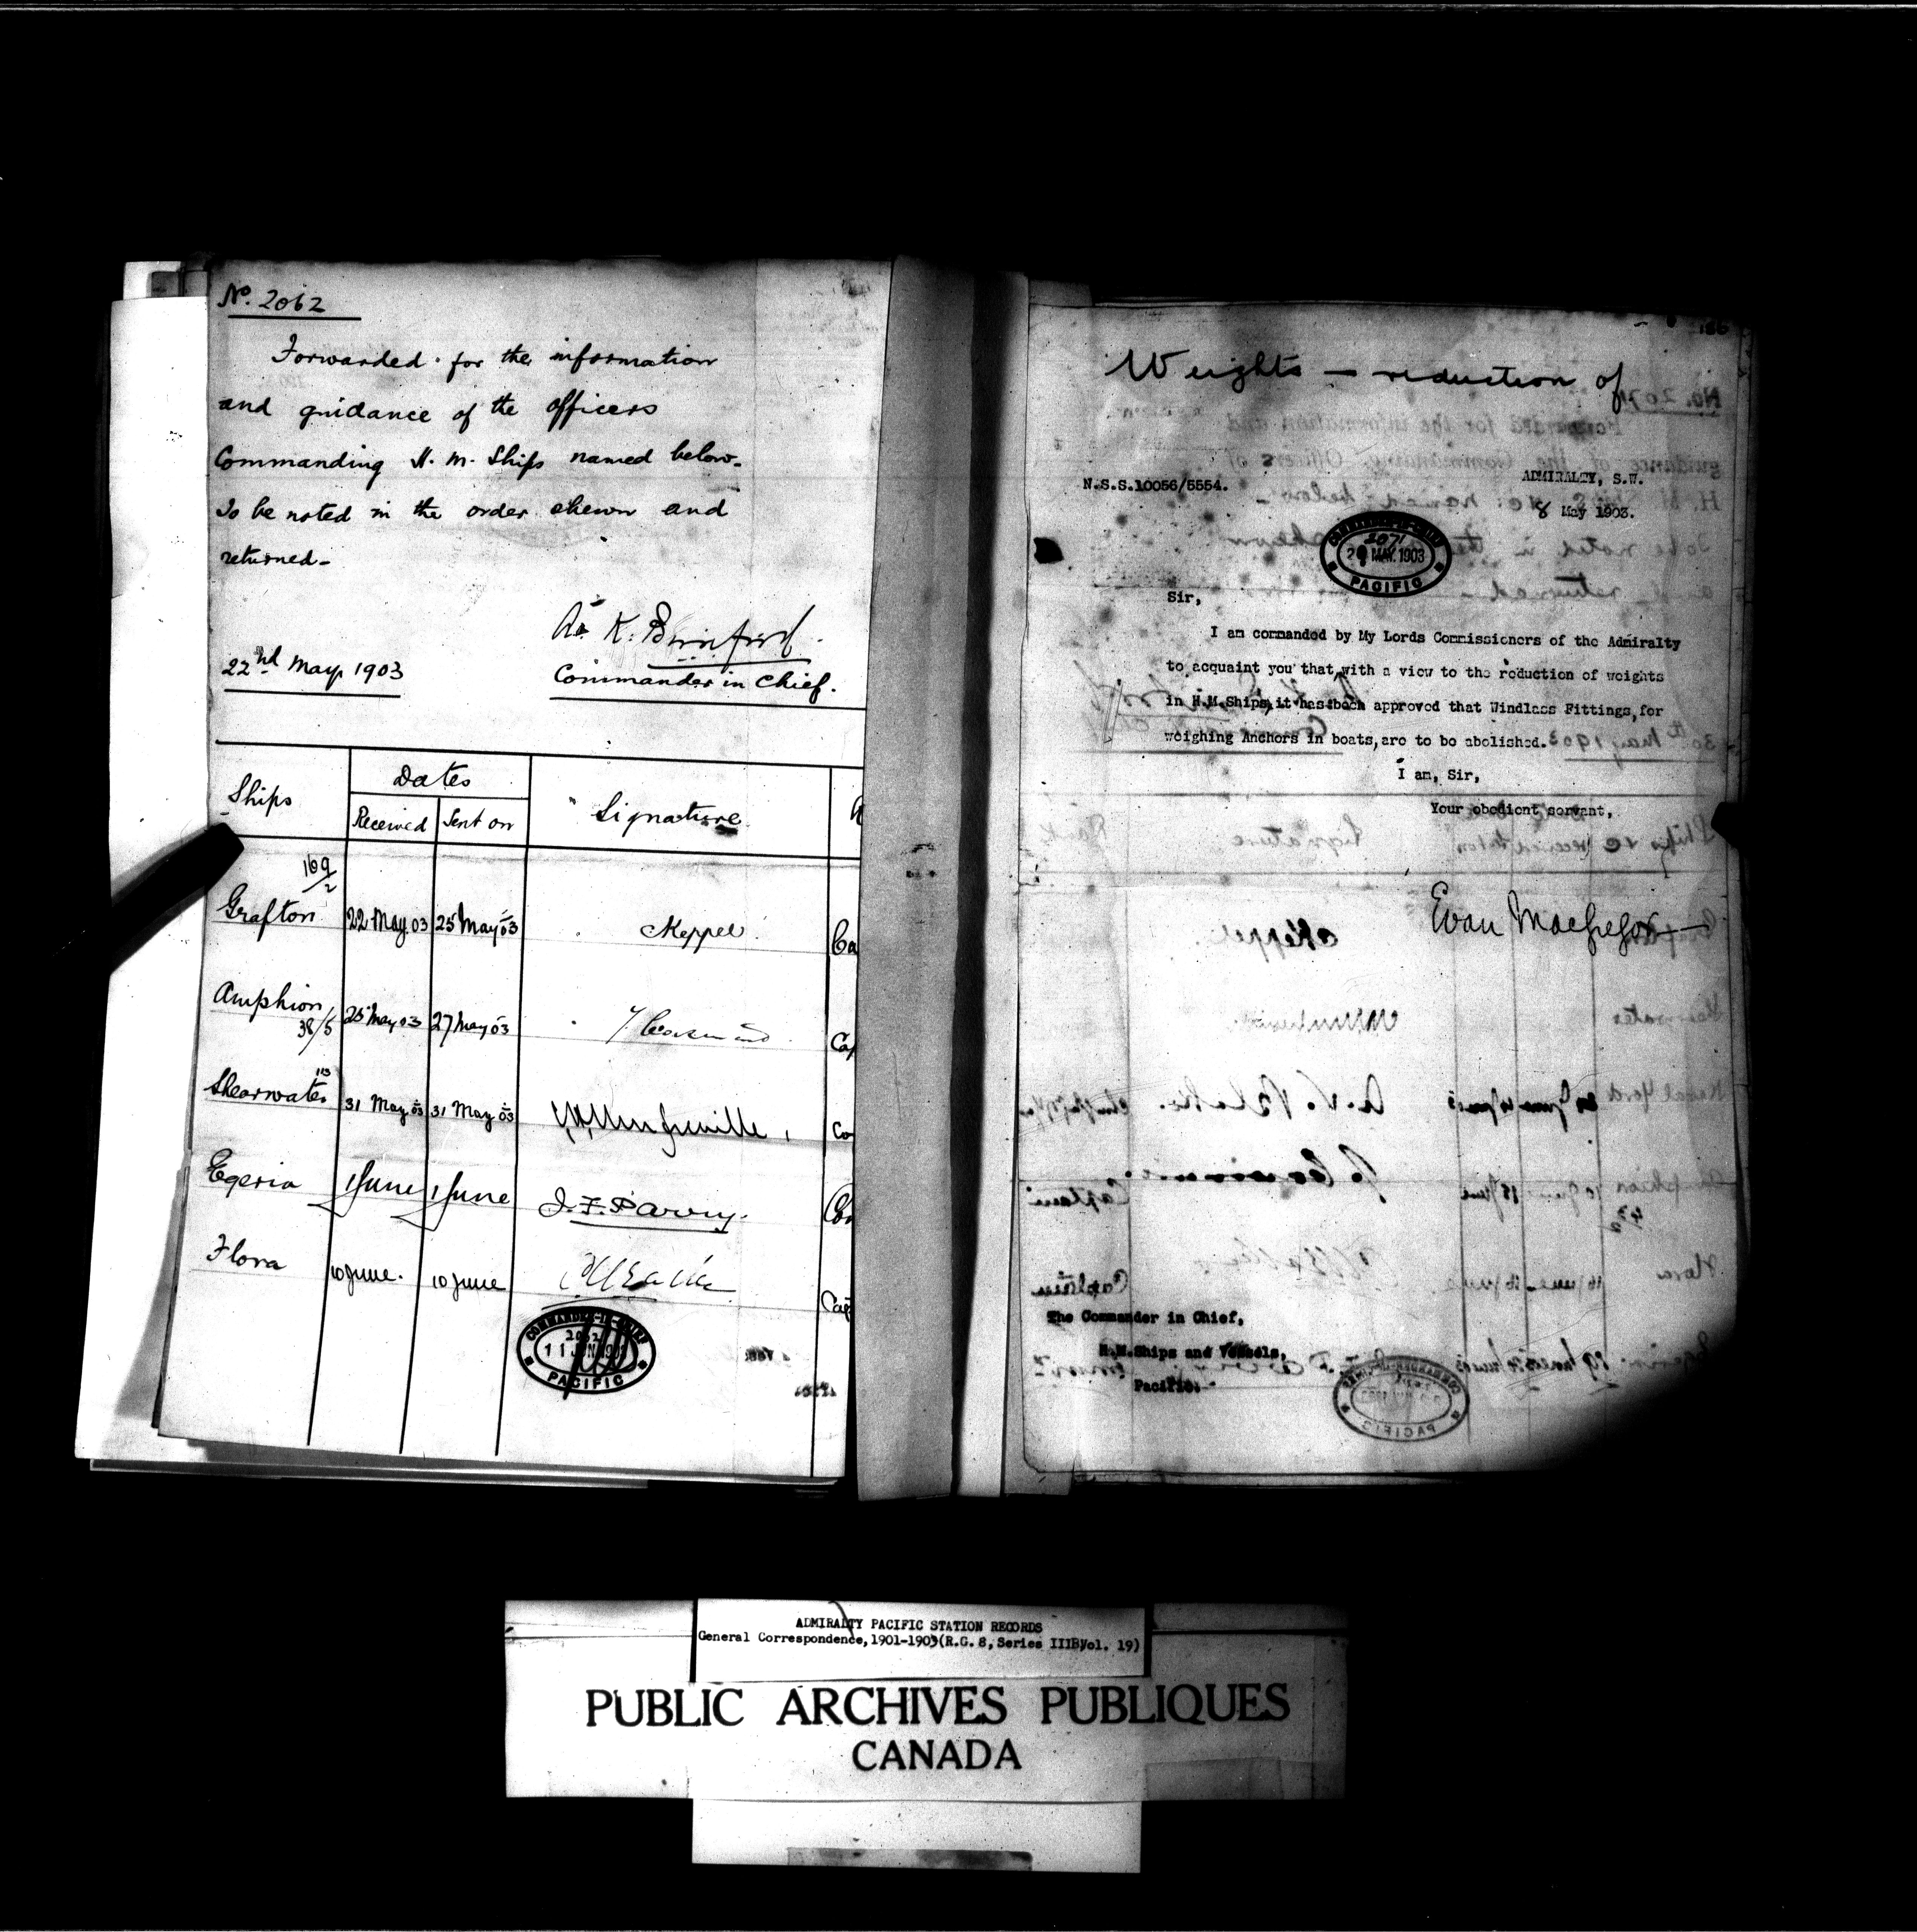 No. 2062
Forwarded for the information
and guidance of the officers
Commanding H. M. Ships named below.
To be noted in the order shewn and
returned.
22nd May 1903
Commander in Chief.
Ships
Dates
Received
Sent on
Signature
Grafton 169/2
22 May 03
25 May 03
Keppel
Ca
Amphion 38/5
25 May 03
27 May 03
Cap
Shearwater 113
31 May 03
31 May 03
Co
Egeria
1 June
1 June
J. F. Parry.
Com
Flora
10 June.
10 June
Cap
COMMANDER-IN-CHIEF
2062
11 JUN 1903
PACIFIC
186
Weights - reduction of
N.S.S.10056/5554.
ADMIRALTY, S.W.
8 May 1903.
COMMANDER-IN-CHIEF
2071
MAY. 1903
PACIFIC
Sir,
I am commanded by My Lords Commissioners of the Admiralty
to acquaint you that, with a view to the reduction of weights
in H.M.Ships, it has been approved that Windlass Fittings, for
weighing Anchors in boats, are to be abolished.
I am, Sir,
Your obedient servant,
Evan MacGregor
The Commander in Chief,
H.M.Ships and Vessels,
Pacific.
ADMIRALTY PACIFIC STATION RECORDS
General Correspondence, 1901-1903 (R.G. 8, Series IIIB, Vol. 19)
PUBLIC ARCHIVES PUBLIQUES
CANADA